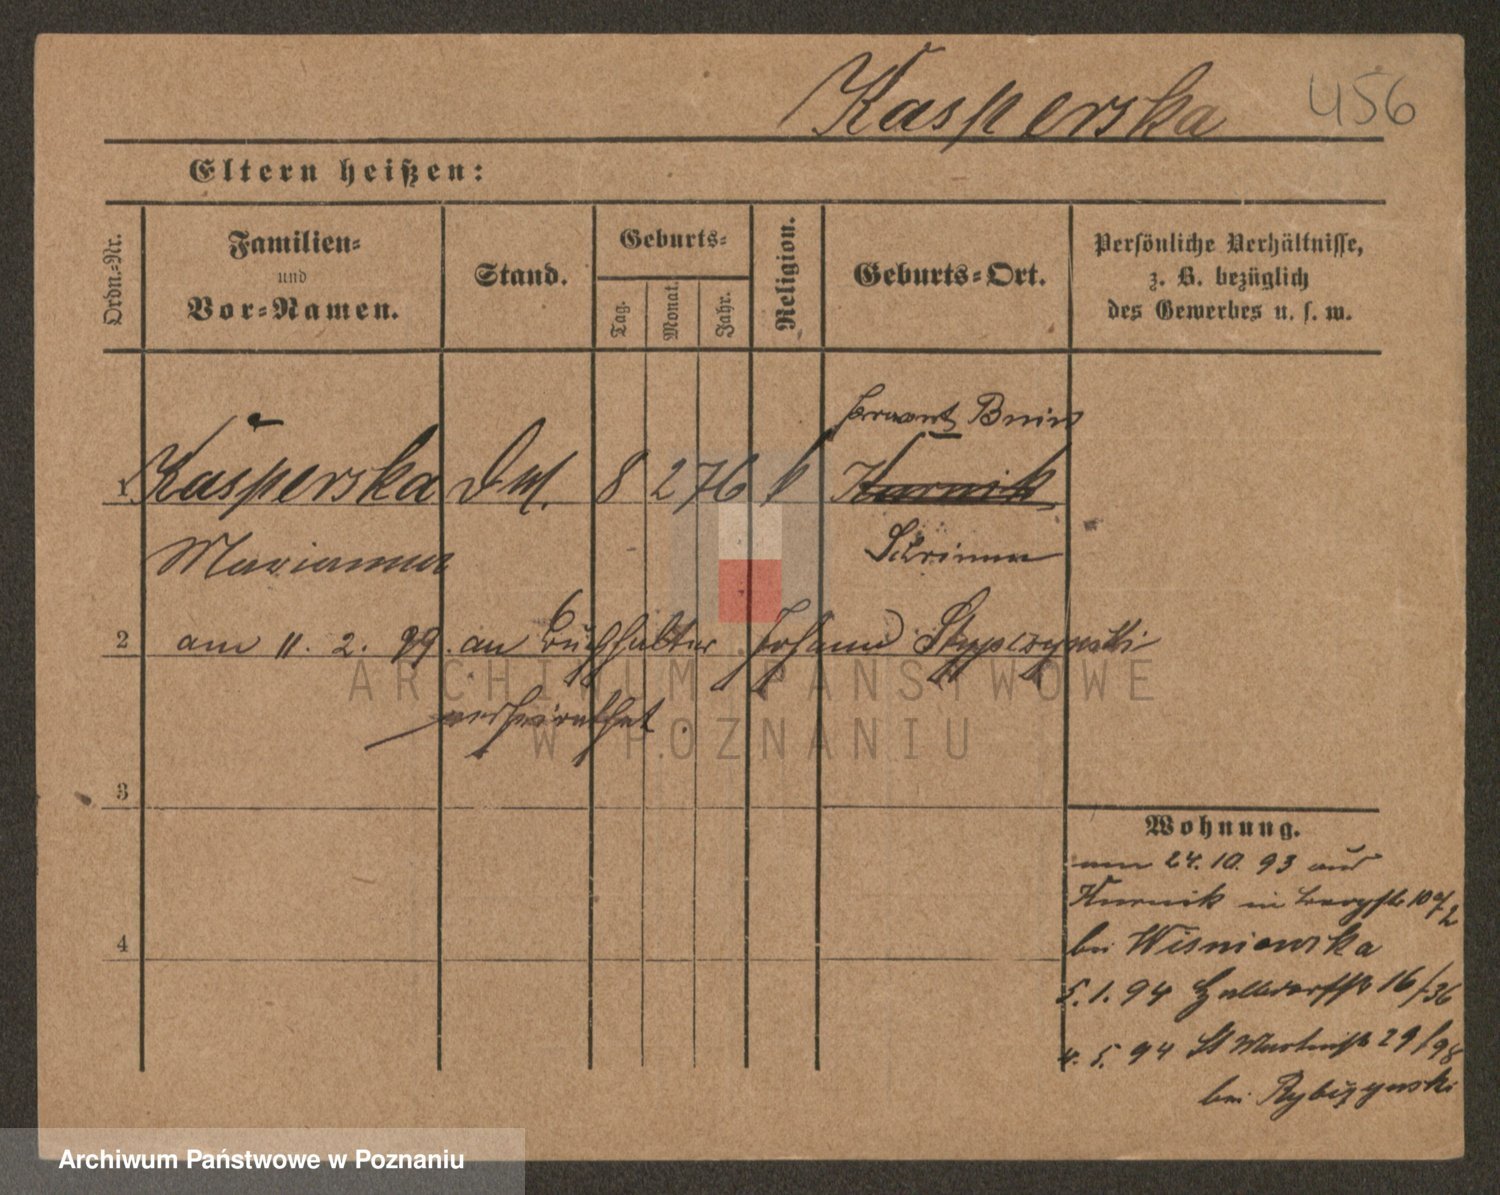 Kasperska 456
Eltern heißen:
Ordn.-Nr.
Familien-
und
Vor-Namen.
Stand.
Geburts-
Tag.
Monat.
Jahr.
Religion.
Geburts-Ort.
Persönliche Verhältnisse,
z. B. bezüglich
des Gewerbes u. s. w.
Bnin
1 Kasperska 8 2 76 k Kurnik
Marianna Schrimm
2 am 11. 2. 99. an Buchhalter Johann Stypczynski
verheirathet.
3
4
Wohnung.
am 24. 10. 93 aus
Kurnik in Bergstr 10
bei Wisniewska
5. 1. 94 Halldorfstr 16/36
4. 5. 94 St Martinstr 29/98
bei Rybizynski
ARCHIWUM PAŃSTWOWE
W POZNANIU
Archiwum Państwowe w Poznaniu